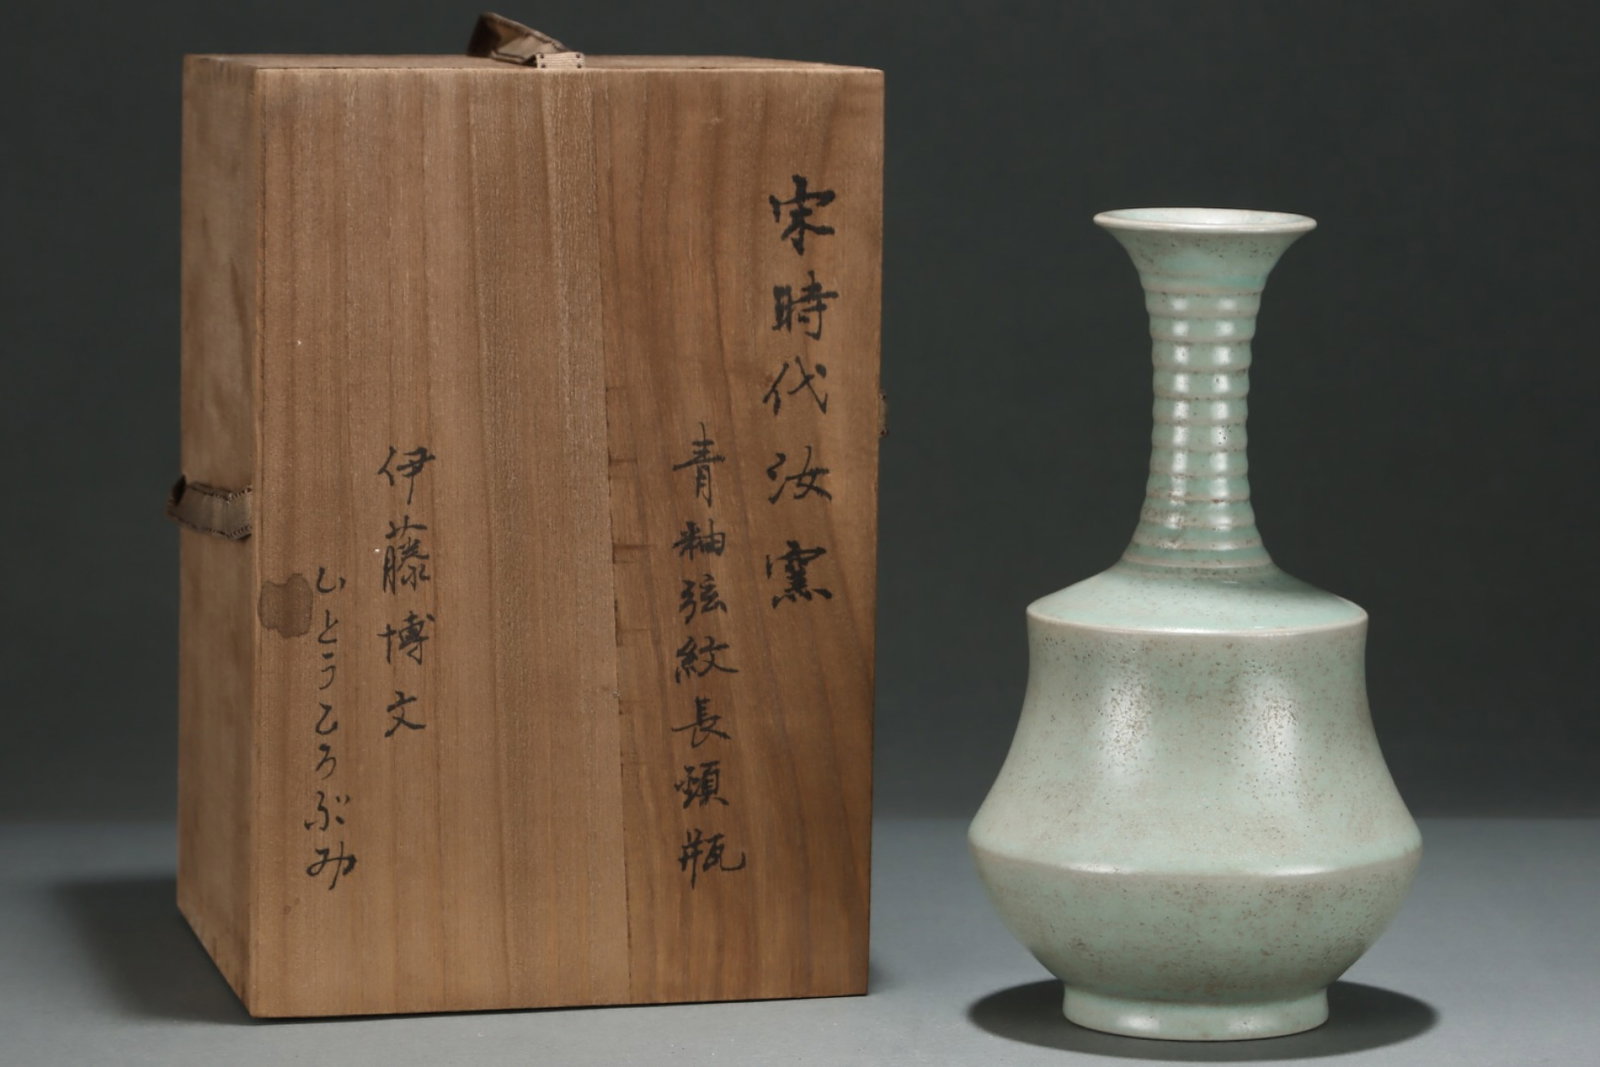 宋時代汝窯
青釉弦紋長頸瓶
伊藤博文
ひとうひろぶみ